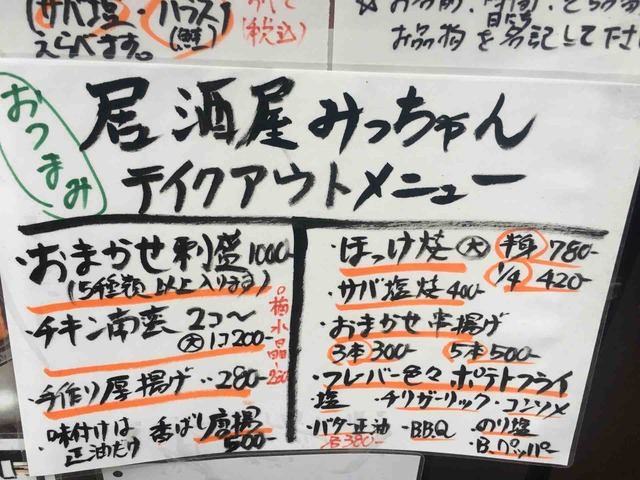 (サバ塩・ハラス
えらべます。(鮭)
(税込)
お品物を名記して下さ
おつまみ
居酒屋みっちゃん
テイクアウトメニュー
・おまかせ刺盛 1000-
(5種類以上入ります)
・チキン南蛮 2コ〜
大 1コ200-
・手作り厚揚げ‥280-
・味付けは 香ばし唐揚
正油だけ 500-
・ほっけ焼 大 半身 780-
1/4 420-
・サバ塩焼 400-
・おまかせ串揚げ
3本300- 5本500-
・フレーバー色々ポテトフライ
塩 ・チリガーリック・コンソメ
・バター正油 ・B.B.Q ・のり塩
380- ・B.ペッパー